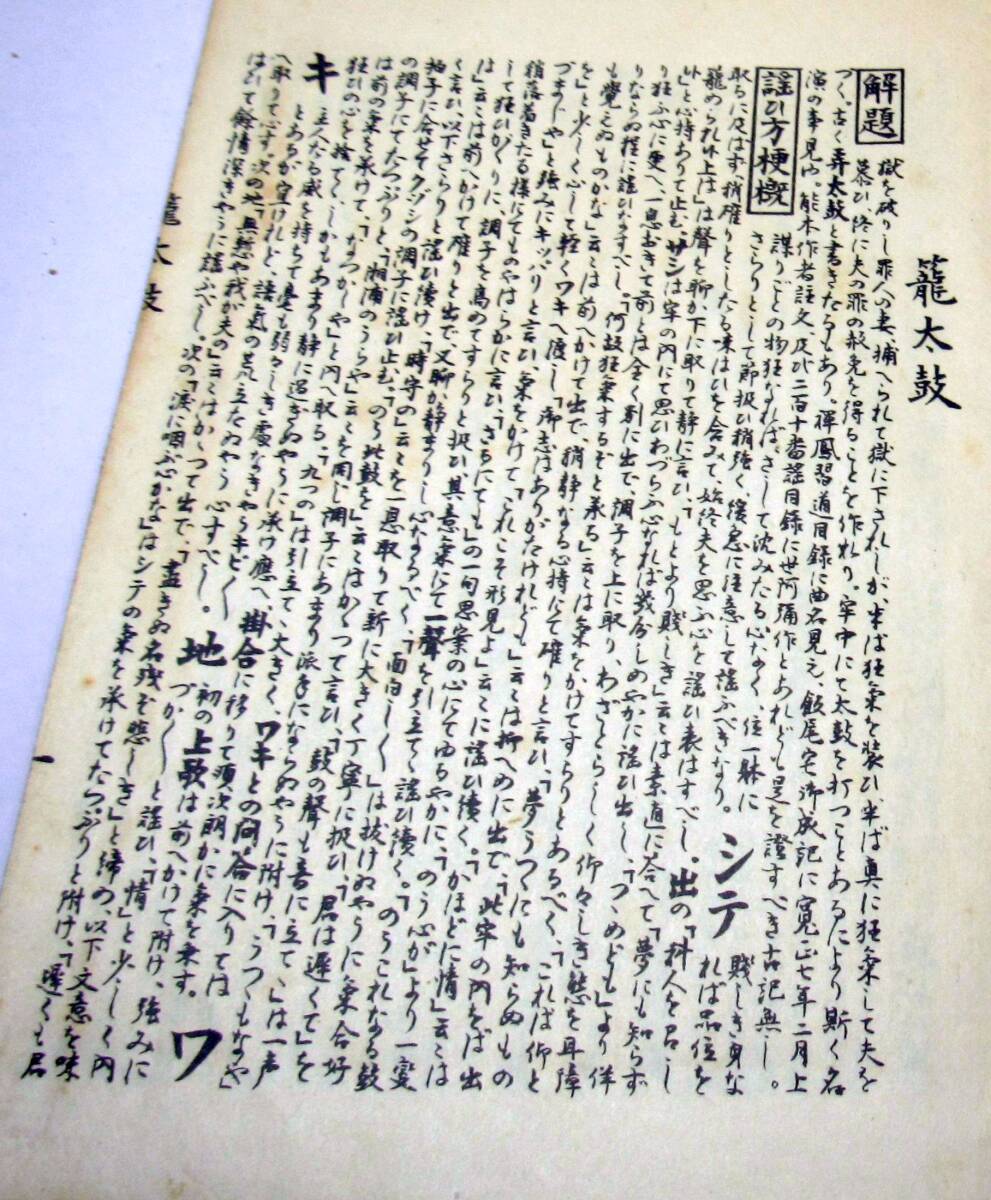 籠太鼓
解題 獄を破りし罪人の妻捕へられて獄に下されしが、半ば狂氣を装ひ、半ば眞に狂氣して夫を
慕ひ、終に夫の罪の赦免を得ることを作れり。牢中にて太鼓を打つことあるにより斯く名
づく。古く弄太鼓と書きたるもあり。禪鳳習道目録に曲名見え、飯尾宅御成記に寛正七年二月上
演の事見ゆ。能本作者註文及び二百十番謠目録に世阿彌作とあれども是を證すべき古記無し。
謠ひ方梗概 謀りごとの物狂なれば、さして沈みたる心なく、位一躰に
さらりとして節扱ひ稍強く、緩急に注意して謠ふべきなり。 シテ 賤しき身な
れば品位を
取るに足はず、稍確りとしたる味はひを含みて、始終夫を思ふ心を謠ひ表はすべし。出の「科人を召し
籠められ候上は」は聲を聊か下に取りて静に言ひ、「もとより賤しき」云々は素直に答へて「夢にも知らず
候」と心持ありて止む。サシは牢の内にて思ひわづらふ心なれば幾分しめやかに謠ひ出し、「つゝめども」より伴
り狂ふ心に更へ、一息おきて前とは全く別に出で、調子を上に取り、わざとらしく仰々しき態を耳障
りならぬ程に謠ひなすべし。「何故狂氣するぞと承る」云々は氣をかけてすらりとあるべく、「これは仰と
も覺えぬものかな」云々は前へかけて出で、稍静なる心持にて確りと言ひ、「夢うつつにも知らぬもの
を」と少しく心して軽くワキへ渡し、「御志はありがたけれども」云々は抑へめに出で、「此牢の内をば出
づまじや」と強みにキッパリと言ひ、氣をかけて「これこそ形見よ」云々に謠ひ續く。「かほどに情」云々は
稍落着きたる様にてものやはらかに言ひ、「さるにても」の一句思案の心にてゆるやかに、「のう心が」より一変
して狂ひがくりに、調子を高めてすらりと扱ひ其意氣にて一聲をし引立てて謠ひ續く。「のうこれなる鼓
は」云々は前へかけて確りと出で、又聊か静まりし心なるべく「面白し〳〵」は抜けぬやうに氣合好
く言ひ、以下さらりと謠ひ續け、「時守の」云々を一息取りて新に大きく丁寧に扱ひ、「君は遅くて」を
拍子に合せてクヅシの調子に謠ひ止む。「のう此鼓を」云々はかゝつて言ひ、「鼓の聲も音に立て」は一声
の調子にてたつぷりと、「湘浦のうらや」云々を同じ調子にあまり派手にならぬやうに附け、「うつゝもなや」
は前の氣を承けて、「なつかしや」と内へ取る。「九つの」は引立て、大きく、
狂ひの心を捨てゝ、しかもあまり静に過ぎぬやうに承け應へ、 ワキとの問答に入りては
キ 主人なる威を持ちて、是も弱るしき處なきやうキビ〳〵 掛合に移りて頃次朗かに氣を乗す。 ワ
とあるが宜けれど、語氣の荒立たぬやう心すべし。 地 初の上歌は前へかけて附け、強みに
へ取りて心す。次の地「無慙や我が夫の」云々はかゝつて出で、「盡きぬ名残ぞ悲しき」と締め、以下文意を味
はひて餘情深きやうに謠ふべし。次の「涙に咽ぶ心かな」はシテの氣を承けてたつぷりと附け、「遅くも君
籠太鼓
一